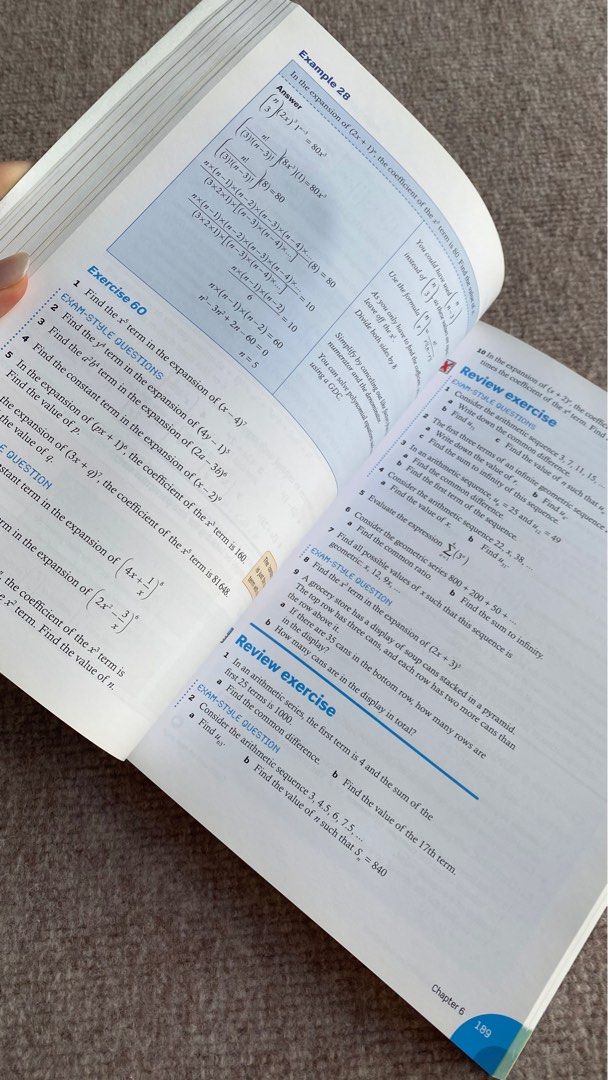 Example 28
In the expansion of (2x + 1)ⁿ, the coefficient of the x³ term is 80. Find the value of n.
Answer
(n 3)(2x)³1ⁿ⁻³ = 80x³
(n!/(3)!(n−3)!)(8x³)(1) = 80x³
(n!/(3)!(n−3)!)(8) = 80
n×(n−1)×(n−2)×(n−3)×(n−4)×.../(3×2×1)×[(n−3)×(n−4)×...] (8) = 80
n×(n−1)×(n−2)×(n−3)×(n−4)×.../(3×2×1)×[(n−3)×(n−4)×...] = 10
n×(n−1)×(n−2)/6 = 10
n×(n−1)×(n−2) = 60
n³ − 3n² + 2n − 60 = 0
n = 5
You could have used
instead of (n 3)
Use the formula
As you only have to find the
leave off the x³.
Divide both sides by 8
Simplify by canceling out the
numerator and the denominator.
You can solve polynomial
using a GDC.
Exercise 6O
1 Find the term in the expansion of (x − 4)⁷
EXAM-STYLE QUESTIONS
2 Find the term in the expansion of (4y − 1)⁵
3 Find the term in the expansion of (2a − 3b)⁶
4 Find the constant term in the expansion of (x − 2)⁹
5 In the expansion of (px + 1)⁶, the coefficient of the x³ term is 160.
Find the value of p.
the expansion of (3x + q)⁷, the coefficient of the x⁵ term is 81 648.
the value of q.
QUESTION
stant term in the expansion of (4x + 1/x)
rm in the expansion of (2x² − 3/x)
the coefficient of the x³ term is
x² term. Find the value of n.
10 In the expansion of (x + 2)ⁿ, the
times the coefficient of the x⁴ term. Find
Review exercise
EXAM-STYLE QUESTIONS
1 Consider the arithmetic sequence 3, 7, 11, 15, ...
a Write down the common difference.
b Find
c Find the value of n such that
2 The first three terms of an infinite geometric sequence
a Write down the value of r.
b Find
c Find the sum to infinity of this sequence.
3 In an arithmetic sequence, = 25 and = 49
a Find the common difference.
b Find the first term of the sequence.
4 Consider the arithmetic sequence 22, x, 38, ...
a Find the value of x.
b Find
5 Evaluate the expression
6 Consider the geometric series 800 + 200 + 50 + ...
a Find the common ratio.
b Find the sum to infinity.
7 Find all possible values of x such that this sequence is
geometric: x, 12, 9x, ...
EXAM-STYLE QUESTION
8 Find the term in the expansion of (2x + 3)⁵
9 A grocery store has a display of soup cans stacked in a pyramid.
The top row has three cans, and each row has two more cans than
the row above it.
a If there are 35 cans in the bottom row, how many rows are
in the display?
b How many cans are in the display in total?
Review exercise
1 In an arithmetic series, the first term is 4 and the sum of the
first 25 terms is 1000.
a Find the common difference.
b Find the value of the 17th term.
EXAM-STYLE QUESTION
2 Consider the arithmetic sequence 3, 4.5, 6, 7.5, ...
a Find u₆₃.
b Find the value of n such that Sₙ = 840
Chapter 6
189